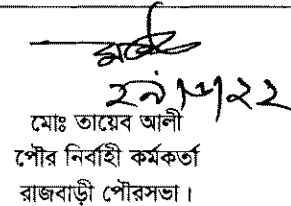 মোঃ তায়েব আলী
পৌর নির্বাহী কর্মকর্তা
রাজবাড়ী পৌরসভা।